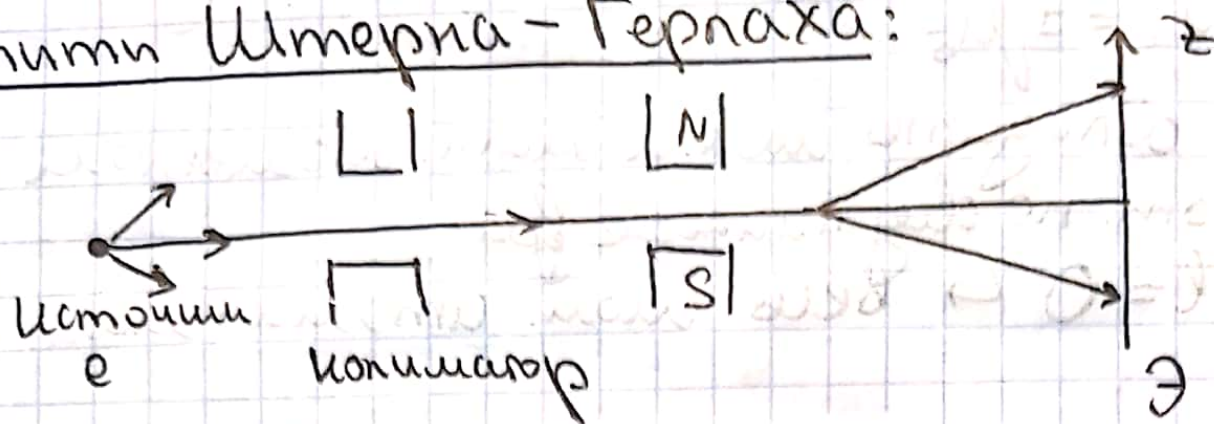 Штерна - Герлаха:
z
N
S
источник
e
колиматор
Э